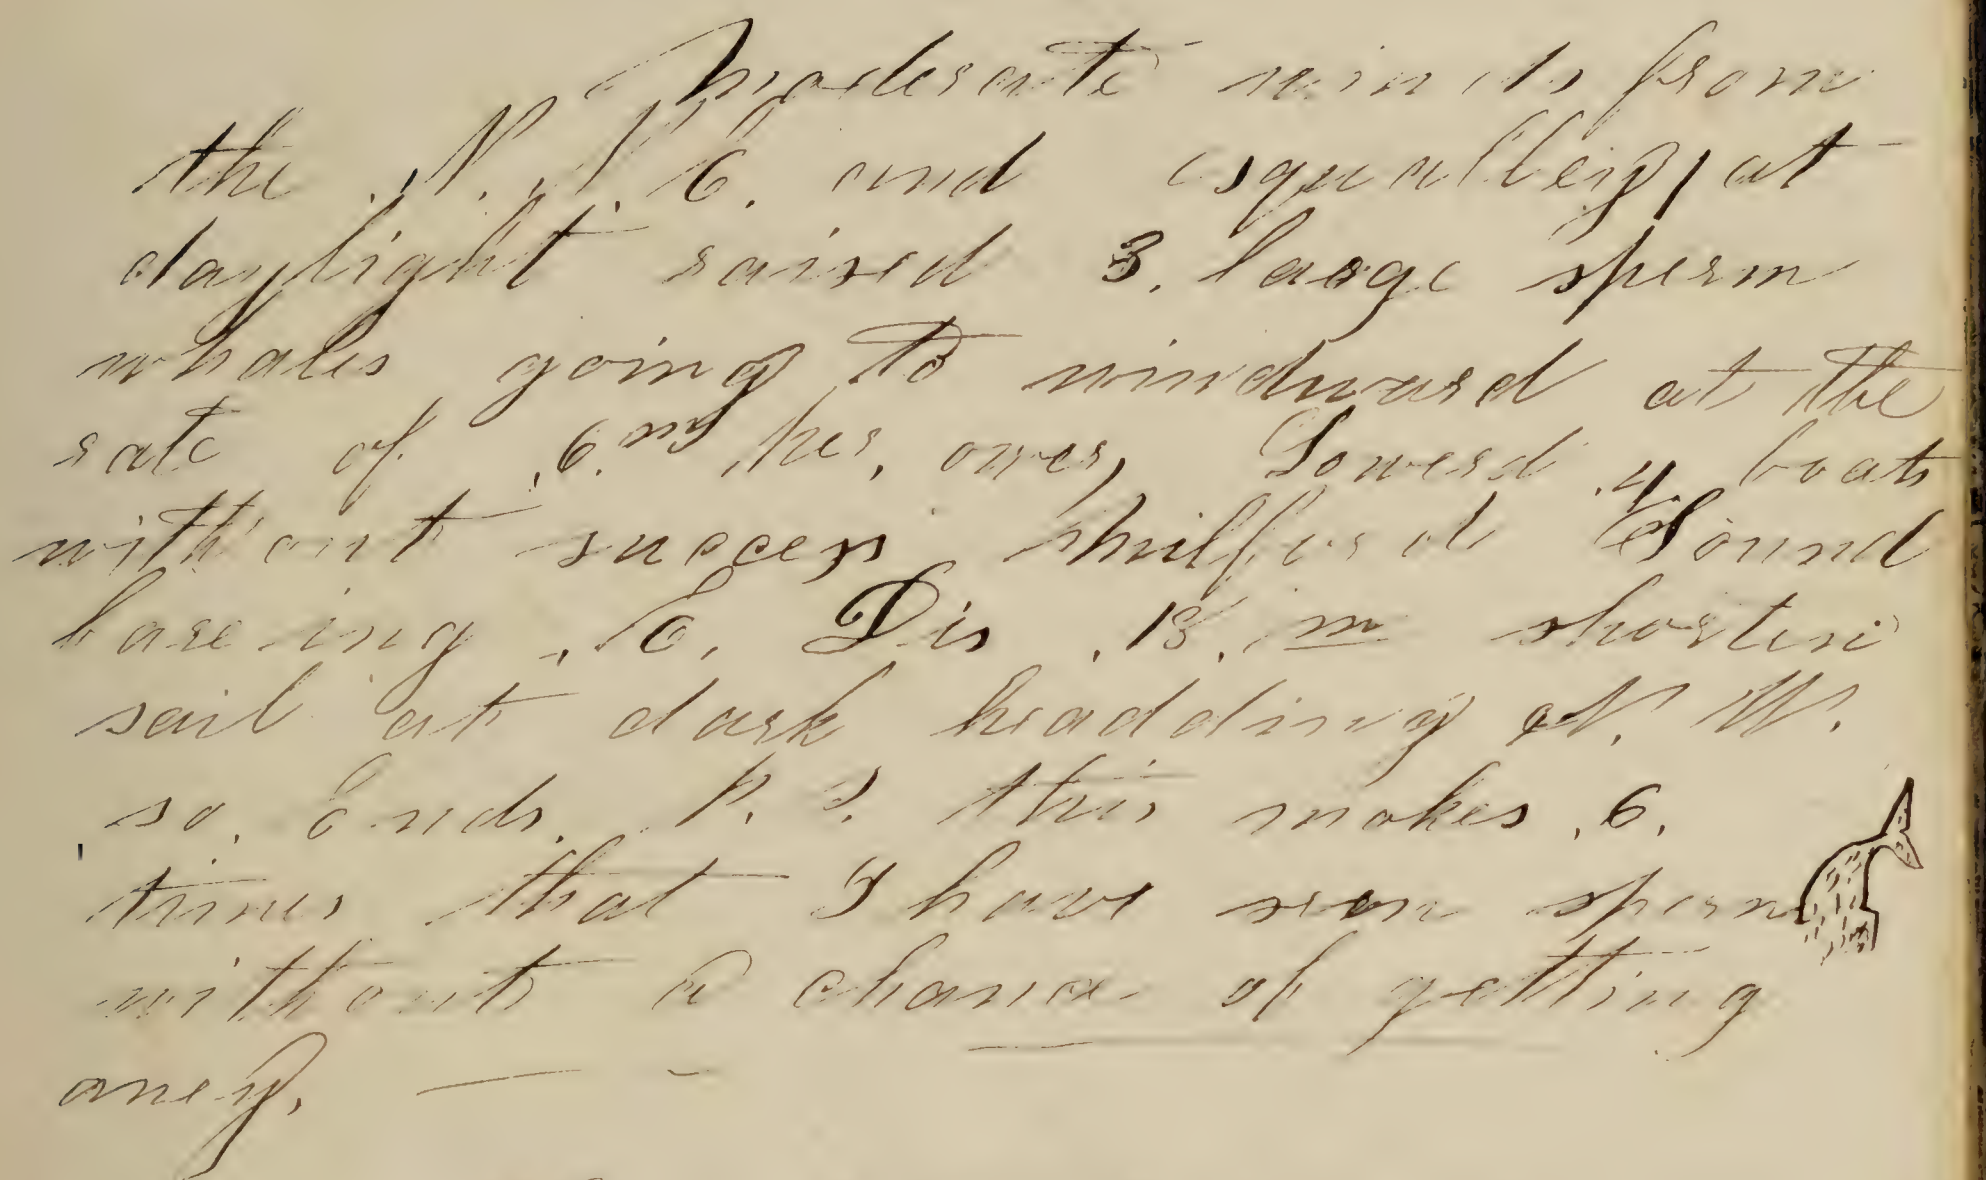 Moderate winds from
the N. N. E. and squalley, at
daylight raised 3. large sperm
whales going to windward at the
rate of .6. m per, ower, Lowerd .4 boats
without success Millford Sound
bareing . E. Dis .18. m shorten
sail at dark headding N. W.
so. Ends. P. S. this makes .6.
times that I have seen sperm
without a chance of getting
aney.